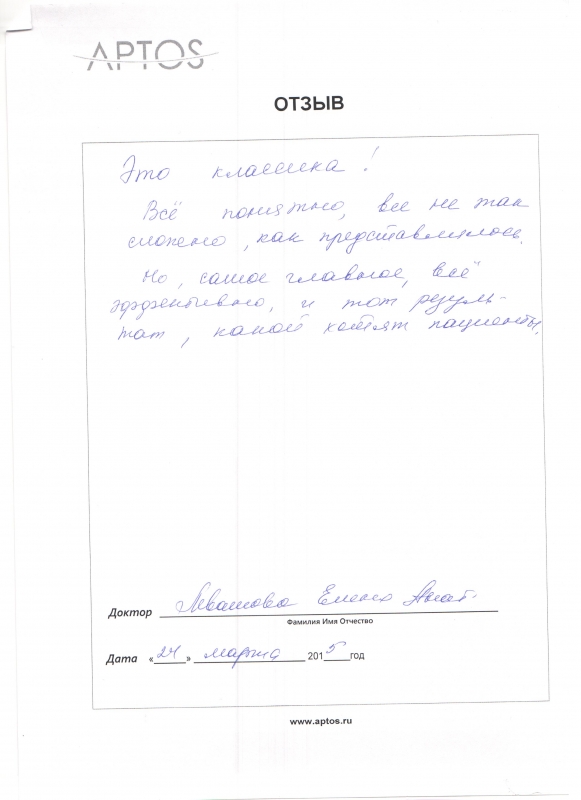 APTOS
ОТЗЫВ
Это классика!
Всё понятно, все не так
сложно, как представлялось.
Но, самое главное, всё
эффективно, и тот резуль-
тат, какой хотят пациенты.
Доктор Елена Анат.
Фамилия Имя Отчество
Дата «24» марта 2015 год
www.aptos.ru